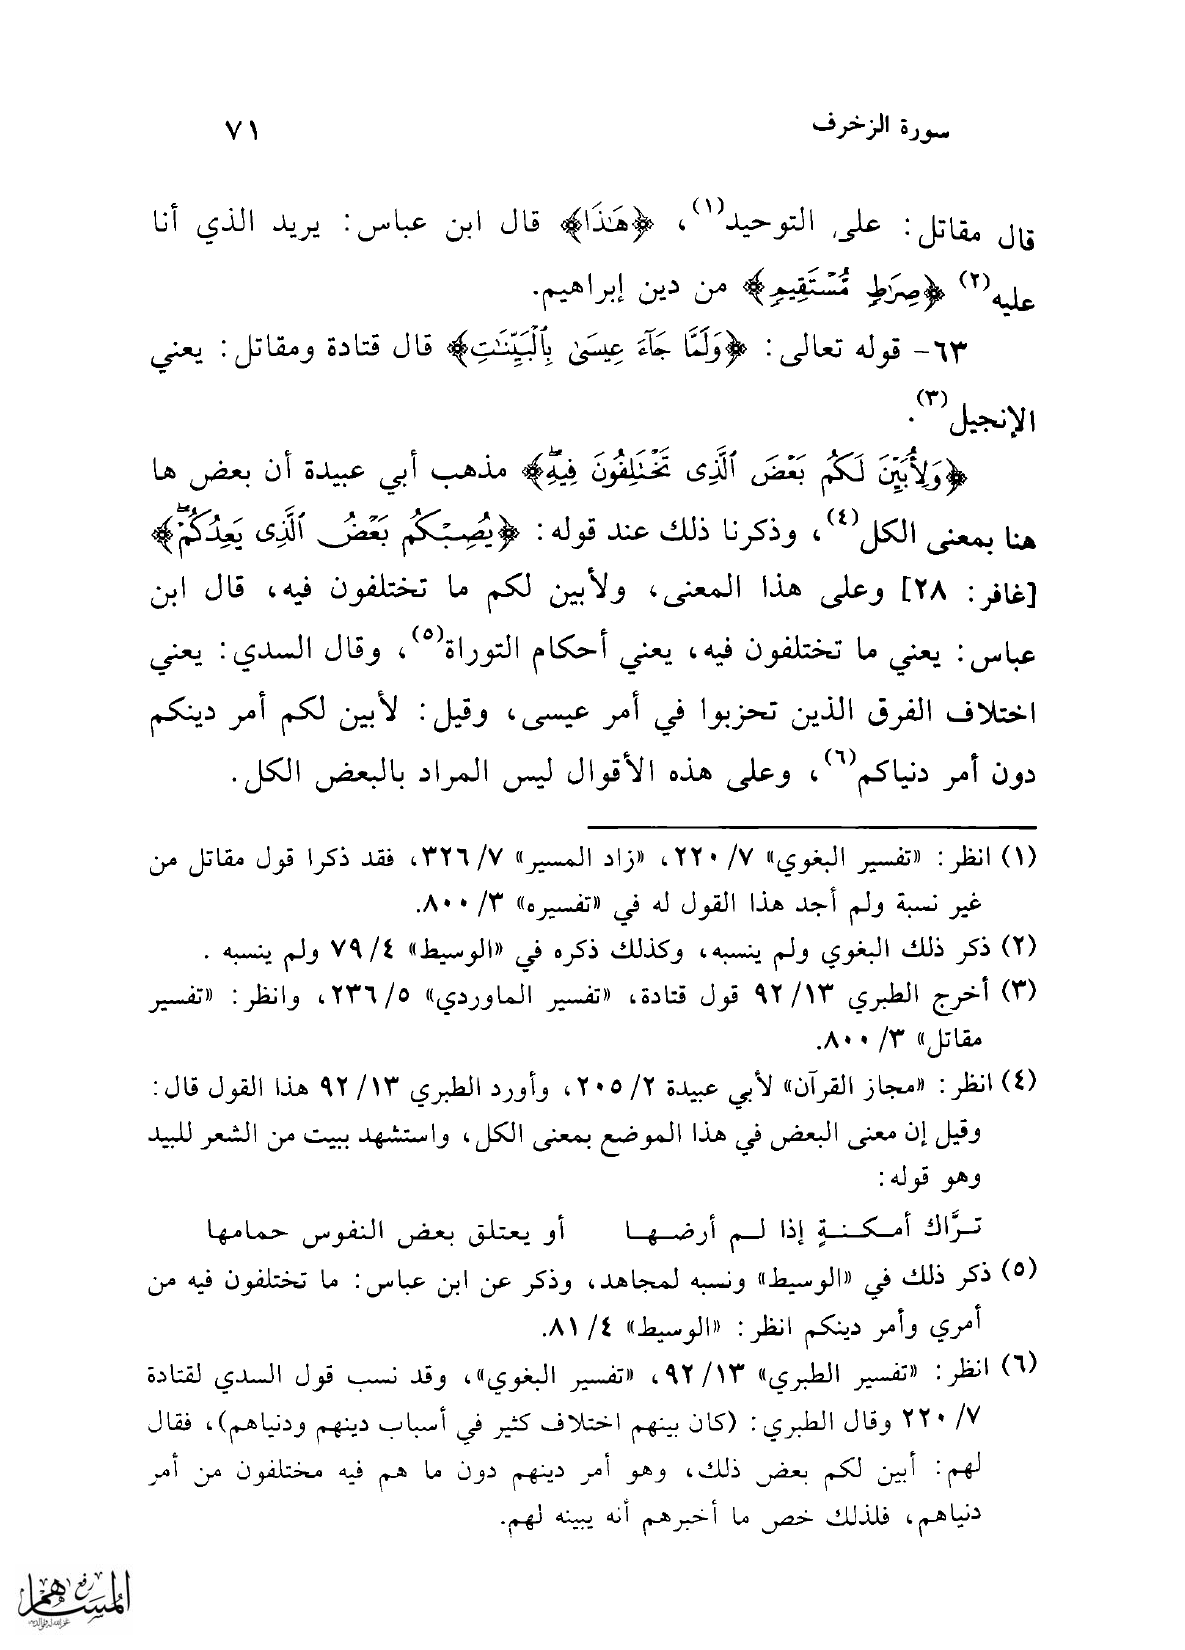 سورة الزخرف ٧١
قال مقاتل: على التوحيد(١)، ﴿هَـٰذَا﴾ قال ابن عباس: يريد الذي أنا
عليه(٢) ﴿صِرَٰطٌ مُّسْتَقِيمٌ﴾ من دين إبراهيم.
٦٣- قوله تعالى: ﴿وَلَمَّا جَآءَ عِيسَىٰ بِٱلْبَيِّنَـٰتِ﴾ قال قتادة ومقاتل: يعني
الإنجيل(٣).
﴿وَلِأُبَيِّنَ لَكُم بَعْضَ ٱلَّذِى تَخْتَلِفُونَ فِيهِۖ﴾ مذهب أبي عبيدة أن بعض ها
هنا بمعنى الكل(٤)، وذكرنا ذلك عند قوله: ﴿يُصِبْكُم بَعْضُ ٱلَّذِى يَعِدُكُمْۖ﴾
[غافر: ٢٨] وعلى هذا المعنى، ولأبين لكم ما تختلفون فيه، قال ابن
عباس: يعني ما تختلفون فيه، يعني أحكام التوراة(٥)، وقال السدي: يعني
اختلاف الفرق الذين تحزبوا في أمر عيسى، وقيل: لأبين لكم أمر دينكم
دون أمر دنياكم(٦)، وعلى هذه الأقوال ليس المراد بالبعض الكل.
(١) انظر: «تفسير البغوي» ٧/ ٢٢٠، «زاد المسير» ٧/ ٣٢٦، فقد ذكرا قول مقاتل من
غير نسبة ولم أجد هذا القول له في «تفسيره» ٣/ ٨٠٠.
(٢) ذكر ذلك البغوي ولم ينسبه، وكذلك ذكره في «الوسيط» ٤/ ٧٩ ولم ينسبه .
(٣) أخرج الطبري ١٣/ ٩٢ قول قتادة، «تفسير الماوردي» ٥/ ٢٣٦، وانظر: «تفسير
مقاتل» ٣/ ٨٠٠.
(٤) انظر: «مجاز القرآن» لأبي عبيدة ٢/ ٢٠٥، وأورد الطبري ١٣/ ٩٢ هذا القول قال:
وقيل إن معنى البعض في هذا الموضع بمعنى الكل، واستشهد ببيت من الشعر للبيد
وهو قوله:
تـرَّاك أمـكـنـةٍ إذا لـم أرضـهـا أو يعتلق بعض النفوس حمامها
(٥) ذكر ذلك في «الوسيط» ونسبه لمجاهد، وذكر عن ابن عباس: ما تختلفون فيه من
أمري وأمر دينكم انظر: «الوسيط» ٤/ ٨١.
(٦) انظر: «تفسير الطبري» ١٣/ ٩٢، «تفسير البغوي»، وقد نسب قول السدي لقتادة
٧/ ٢٢٠ وقال الطبري: (كان بينهم اختلاف كثير في أسباب دينهم ودنياهم)، فقال
لهم: أبين لكم بعض ذلك، وهو أمر دينهم دون ما هم فيه مختلفون من أمر
دنياهم، فلذلك خص ما أخبرهم أنه يبينه لهم.
رفع
المساهم